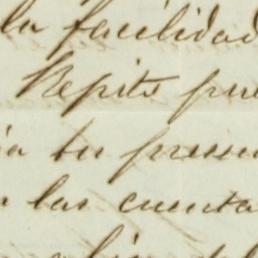 la facilidad
Repito pue
a tu presen
las cuenta